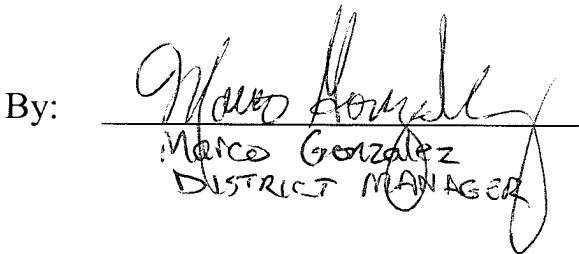 By: Marco Gonzalez
Marco Gonzalez
DISTRICT MANAGER